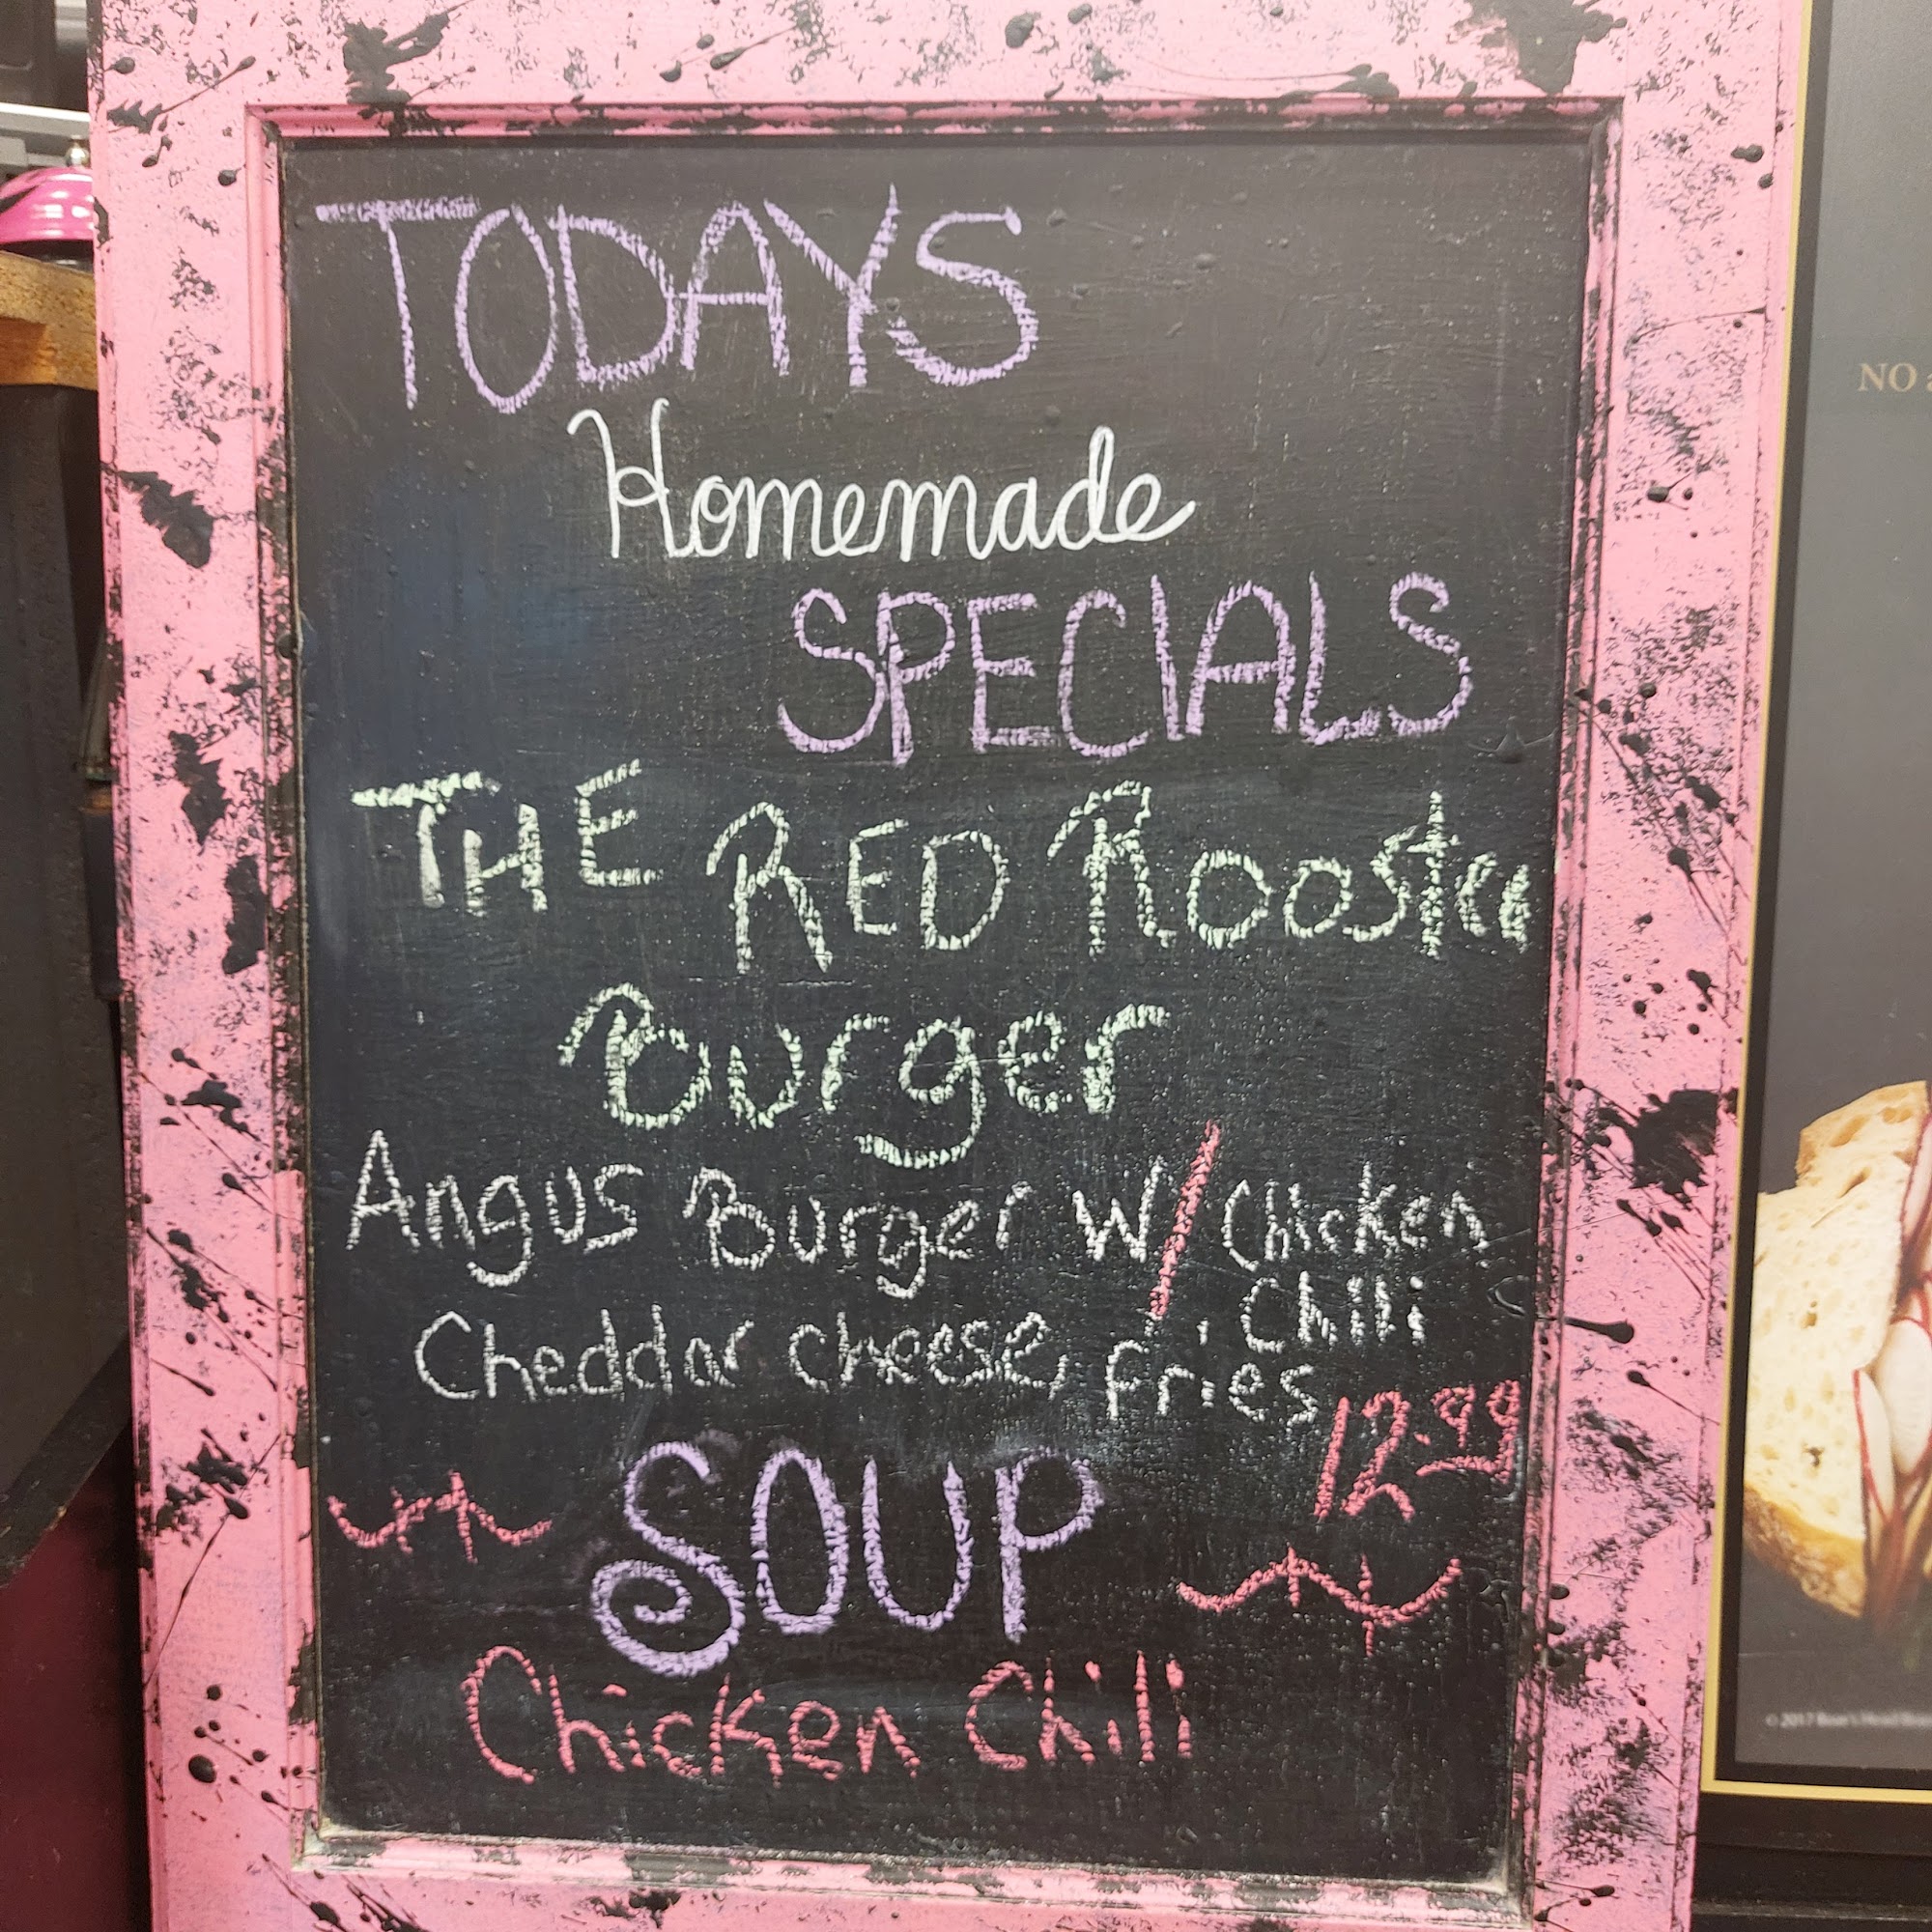 TODAYS
Homemade
SPECIALS
THE RED Rooster
Burger
Angus Burger W/ Chicken
Chili
Cheddar cheese, fries
12.99
SOUP
Chicken Chili
NO
© 2017 Boar's Head